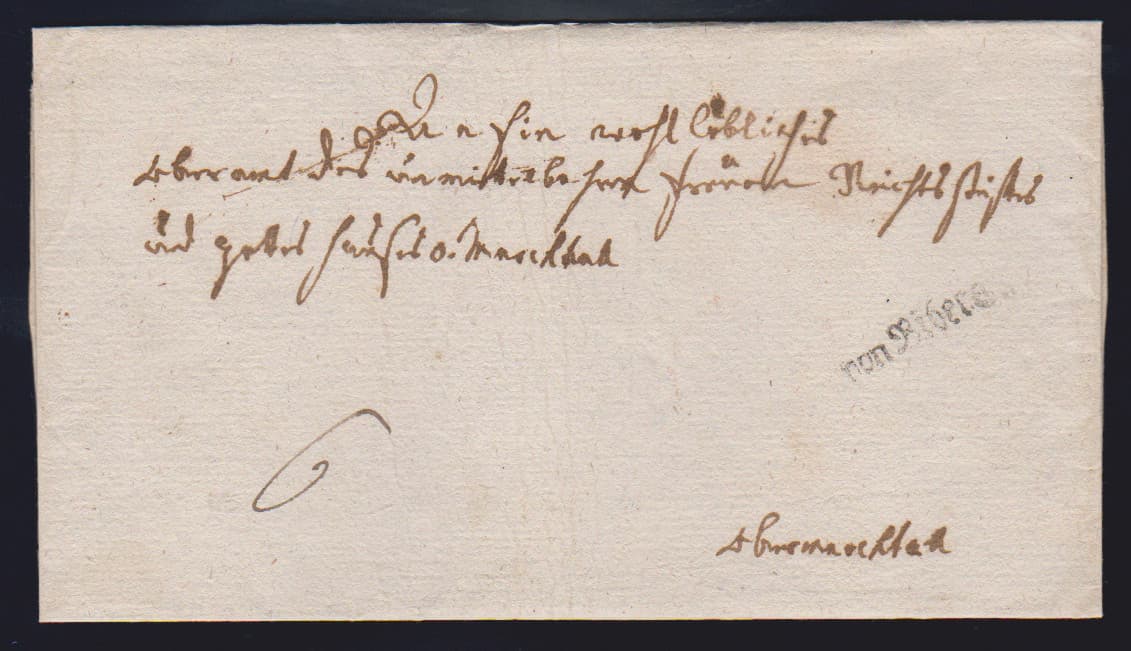 An Ein wohl löbliches
oberamt des unmittelbahren freuen Reichs stiftes
und gottes hauses o. Marchtall
von Bibera
6
obermarchtall